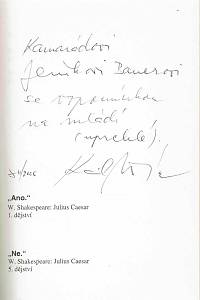 Kamarádovi
Jeníkovi Bauerovi
se vzpomínkou
na mládí
(uprchlé).
„Ano.“
W. Shakespeare: Julius Caesar
1. dějství
„Ne.“
W. Shakespeare: Julius Caesar
5. dějství